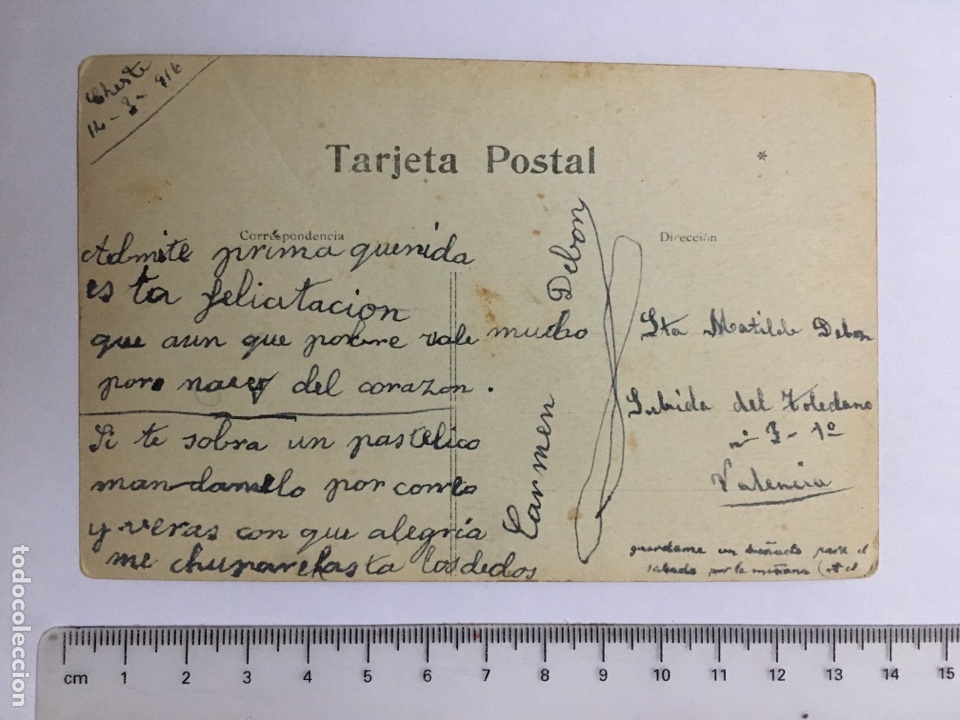 Cheste
12 - 3 - 916
Tarjeta Postal
*
Correspondencia
Dirección
Admite prima querida
es ta felicitacion
que aun que pobre vale mucho
poro nace del corazon.
Si te sobra un pastelico
mandamelo por correo
y veras con que alegria
me chupare hasta los dedos
Carmen Debon
Sta Matilde Debon
Subida del Toledano
nº 3 - 1º
Valencia
guardame un buñuelo para el
sabado por la mañana
todocoleccion
cm 1 2 3 4 5 6 7 8 9 10 11 12 13 14 15